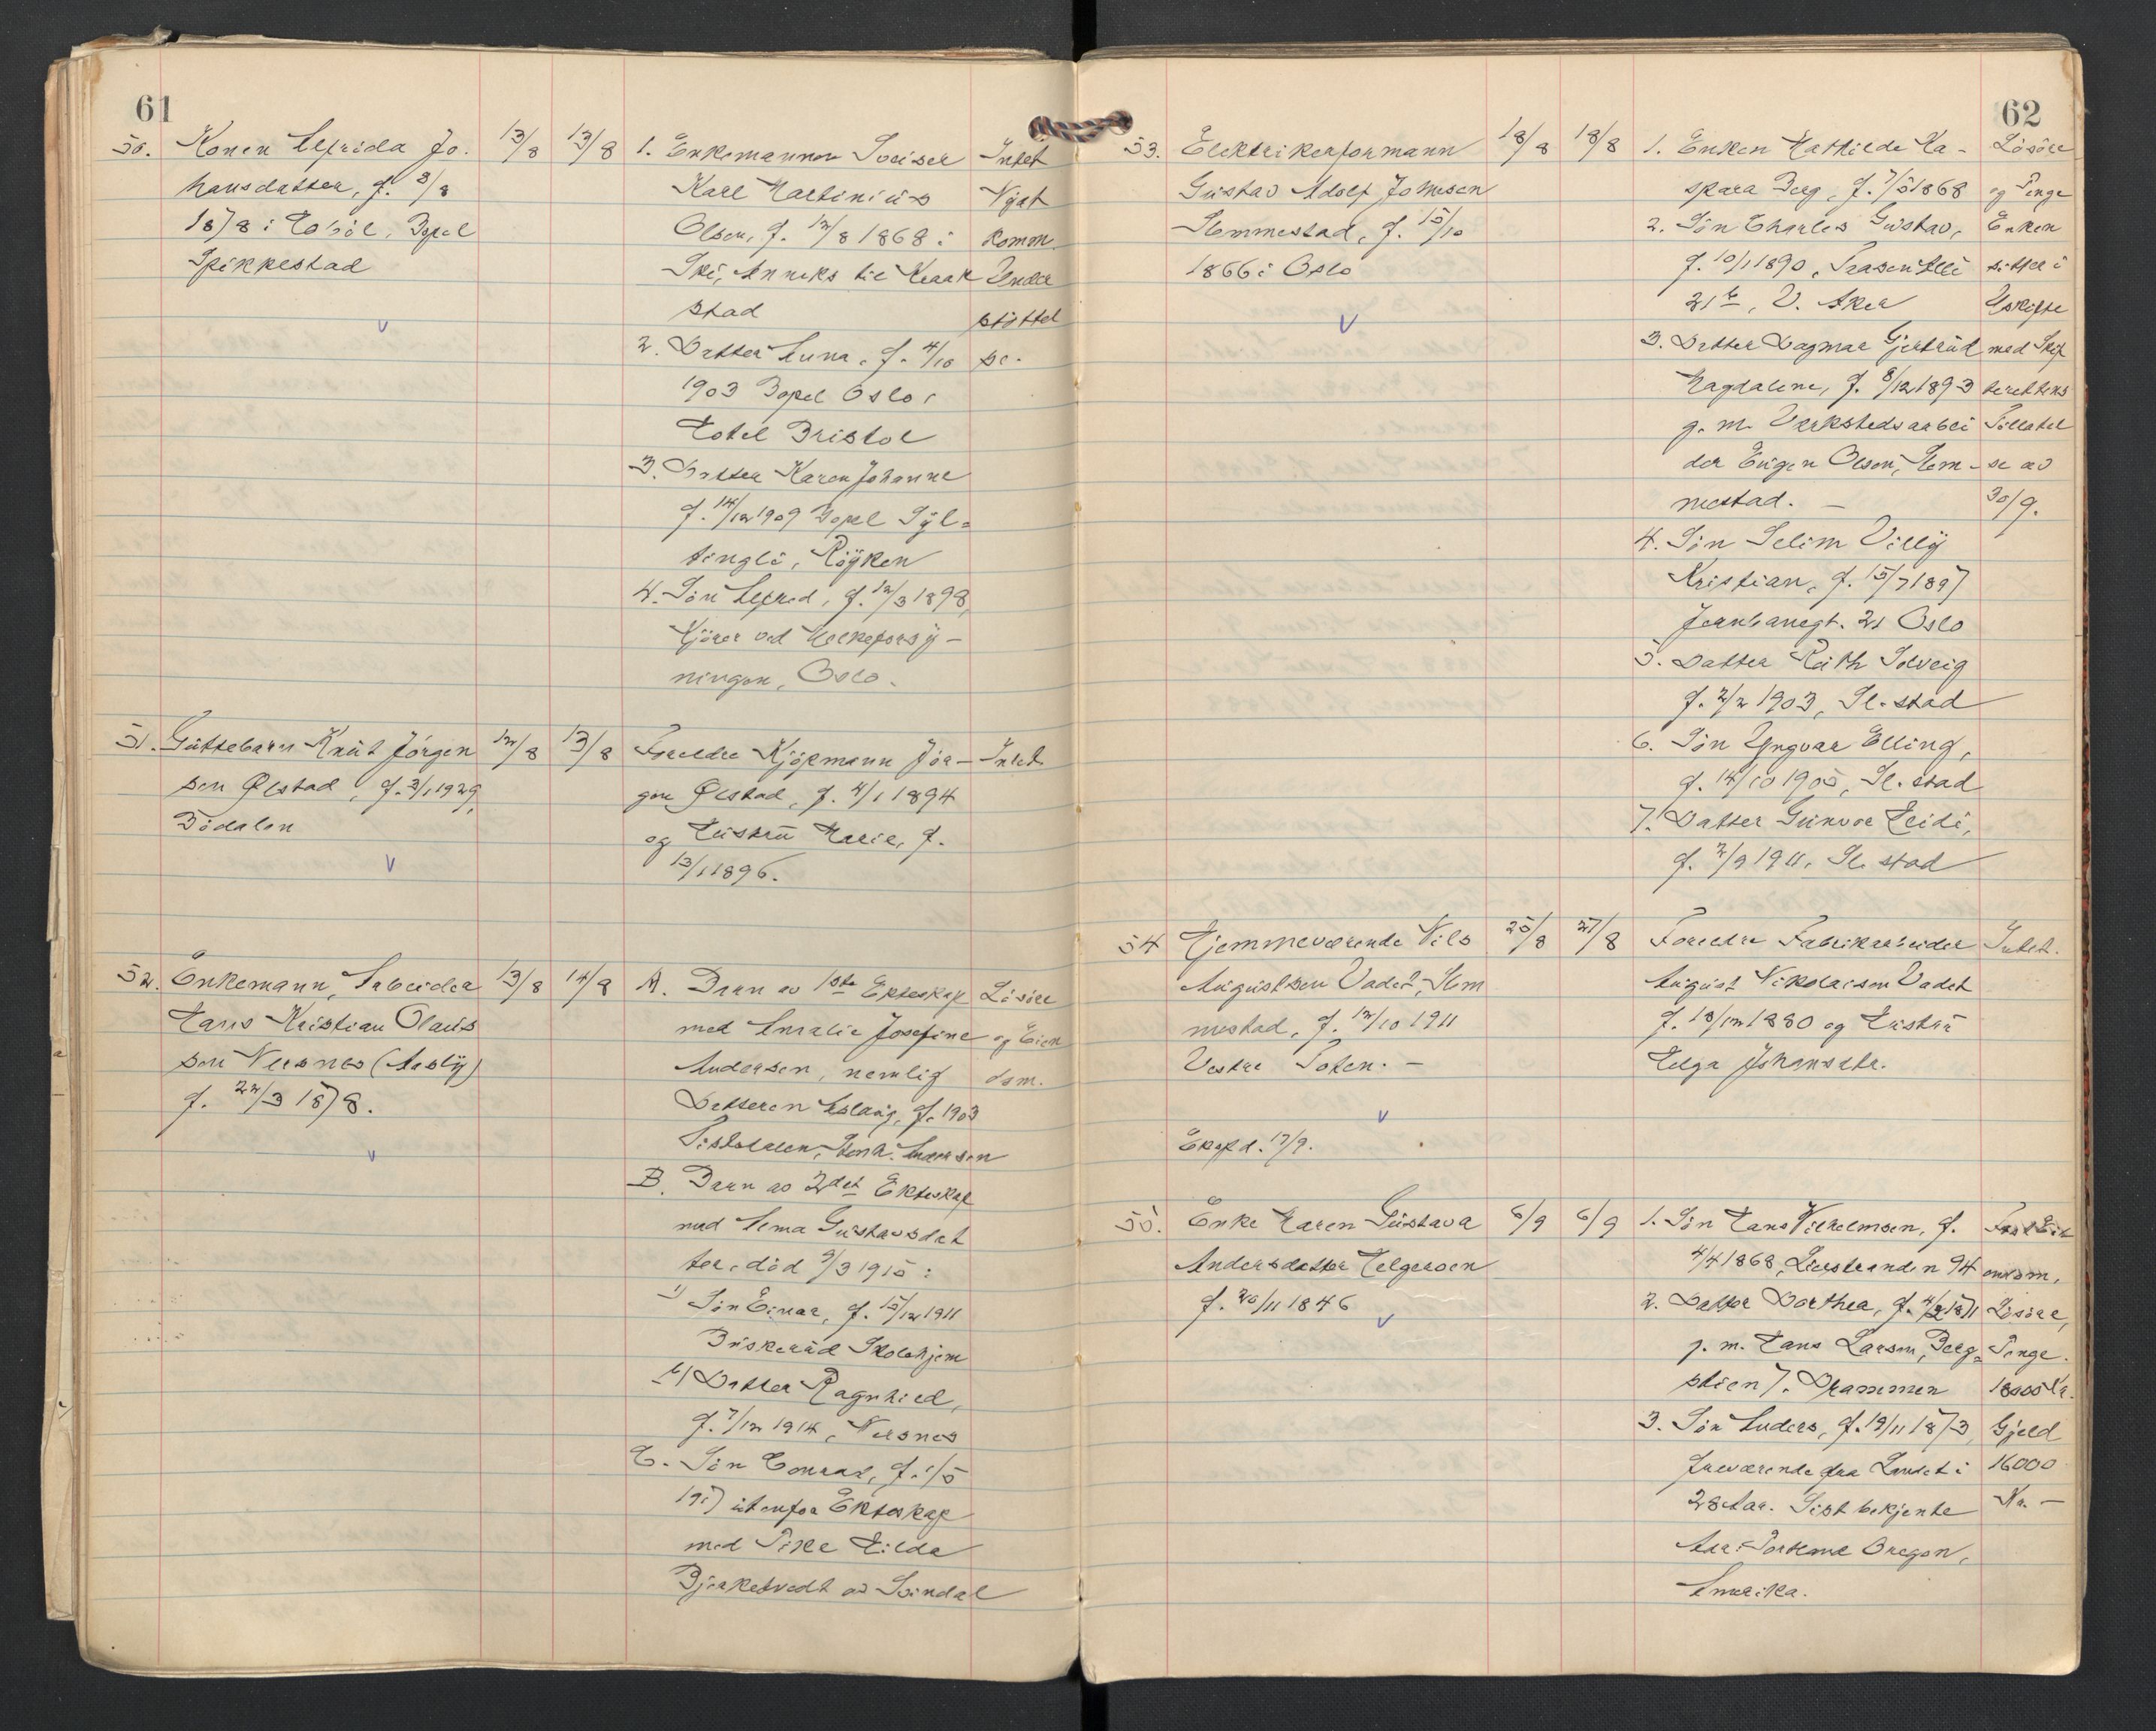 61
50. Konen Alfrida Jo-
hansdatter, f. 8/8
1878 i Hobøl, Bopel
Spikkestad
13/8 13/8
1. Enkemannen Sveiser
Karl Martinius
Olsen, f. 12/8 1868 i
Ski, Anneks til Kraak
stad
2. Datter Anna, f. 4/10
1903 Bopel Oslo,
Hotel Bristol
3. Datter Karen Johanne
f. 14/12 1909 Bopel Syl-
tingli, Røyken
4. Søn Alfred, f. 12/3 1898,
Kjører ved Melkeforsy-
ningen, Oslo.
Intet
Nyat
komm.
Under
støttel
se.
51. Guttebarn Knut Jørgen
sen Ølstad, f. 3/1 1929,
Bødalen
12/8 13/8
Foreldre Kjøpmann Jør-
gen Ølstad, f. 4/1 1894
og Hustru Marie, f.
13/1 1896.
Intet
52. Enkemann, Arbeider
Hans Kristian Olaus
sen Nersnes (Aasly)
f. 22/3 1878.
13/8 14/8
A. Barn av 1ste Ekteskap
med Amalie Josefine
Andersen, nemlig
Datteren Aslaug, f. 1903
B. Barn av 2det Ekteskap
med Anna Gustavsdat
ter, død 9/3 1915:
1) Søn Einar, f. 15/12 1911
Buskerud Skolehjem
2) Datter Ragnhild,
f. 7/12 1914, Nersnes
C. Søn Conrad, f. 1/5
1917 utenfor Ekteskap
med Pike Hilda
Bjerketvedt av Svindal
Løsøre
og Eien
dom.
62
53. Elektrikerformann
Gustav Adolf Johnsen
Slemmestad, f. 15/10
1866 i Oslo
18/8 18/8
1. Enken Mathilde Ka-
spara Berg, f. 7/5 1868
2. Søn Charles Gustav,
f. 10/1 1890, Frasen Alle
21b, V. Aker
3. Datter Dagmar Gjertrud
Magdalene, f. 8/12 1893
g. m. Verkstedsarbei
der Eugen Olsen, Slem-
mestad. -
4. Søn Selim Villy
Kristian, f. 15/7 1897
Jernbanegt. 21 Oslo
5. Datter Ruth Solveig
f. 2/2 1903, Sl. stad
6. Søn Yngvar Elling,
f. 14/10 1905, Sl. stad
7. Datter Gunvor Heidi,
f. 2/9 1911, Sl. stad
Løsøre
og Penge
Enken
sitter i
Uskifte
med Skif
terettens
Tillatel
se av
30/9.
54 Hjemmeværende Nils
Augustsen Vadet, Slem
mestad, f. 12/10 1911
Vestre Toten. -
Eksp d. 17/9.
25/8 27/8
Foreldre Fabrikarbeider
August Nikolaisen Vadet
f. 18/12 1880 og Hustru
Helga Johansdtr.
Intet.
55. Enke Maren Gustava
Andersdatter Helgersen
f. 20/11 1846
6/9 6/9
1. Søn Hans Vilhelmsen, f.
4/4 1868, Lierstranden 94
2. Datter Dorthea, f. 4/2 1871
g. m. Hans Larsen, Berg-
stien 7. Drammen
3. Søn Anders, f. 19/11 1873,
fraværende fra Landet i
28 Aar. Sist bekjente
Adr: Portland Oregon,
Amerika.
Fast Ei
endom,
Løsøre,
Penge.
18000 Kr.
Gjeld
16000
Kr. -